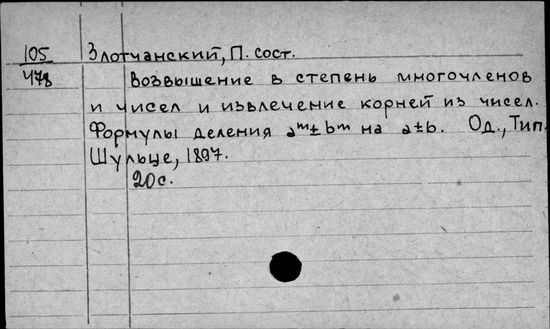 105 Злотчанский, П. сост.
478 Возвышение в степень многочленов
и чисел и извлечение корней из чисел.
Формулы деления a^m±b^m на a±b. Од., Тип.
Шульце, 1897.
20с.